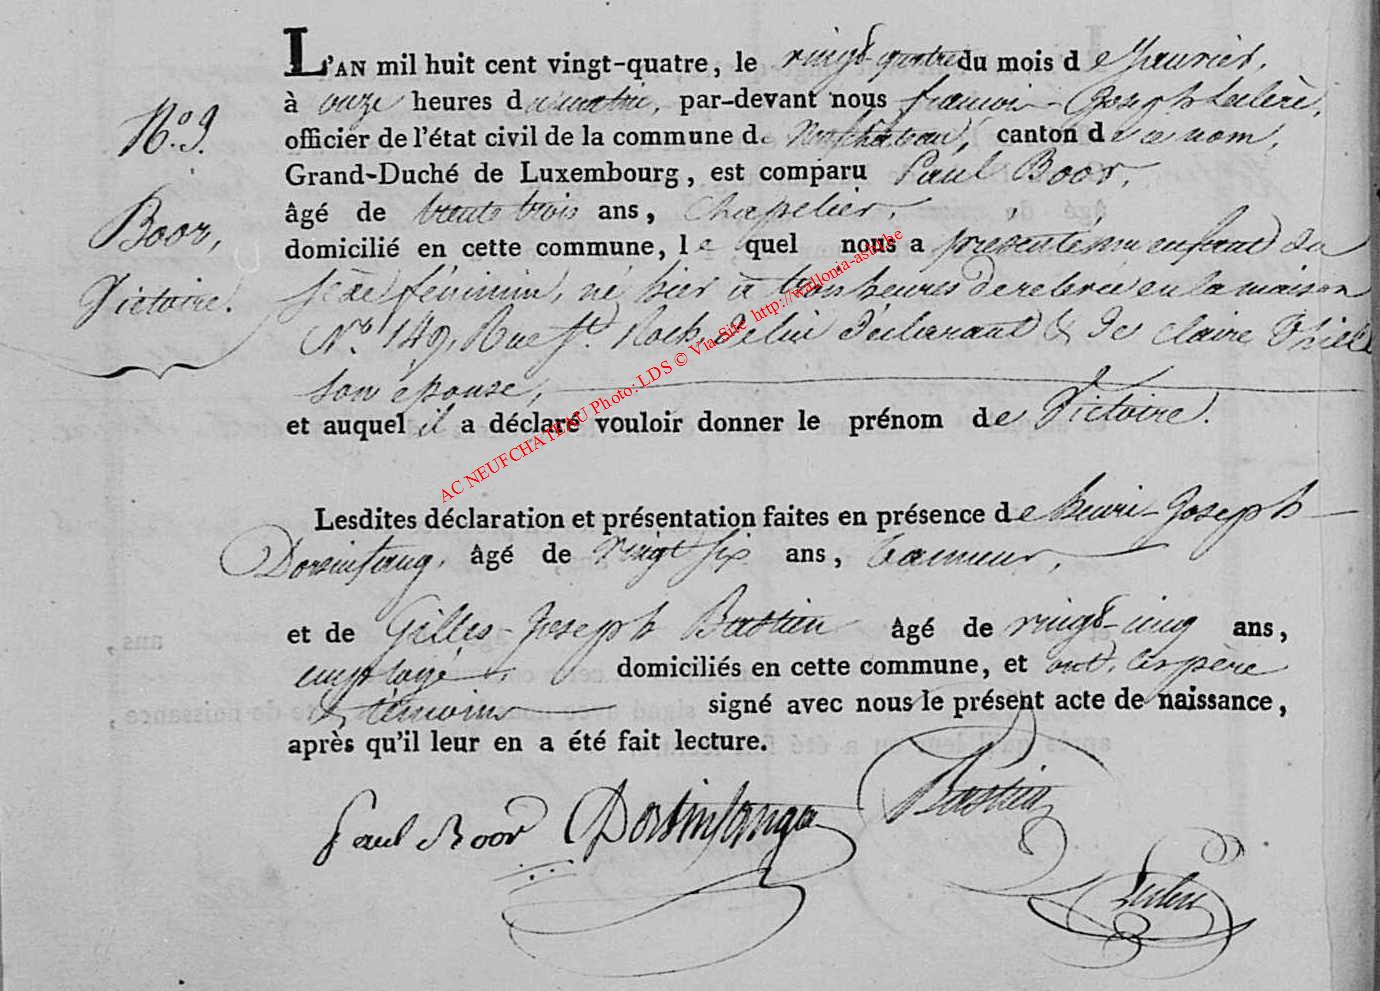 L'AN mil huit cent vingt-quatre, le vingt-quatre du mois de Janvier,
à onze heures du matin, par-devant nous francois-Joseph Leclere,
officier de l'état civil de la commune de Neufchateau, canton de ce nom,
Grand-Duché de Luxembourg, est comparu Paul Boor,
âgé de trente trois ans, Chapelier,
domicilié en cette commune, le quel nous a présenté un enfant du
sexe féminin, né hier à trois heures de relevée en la maison
N.o 149, Rue St. Roch, de lui déclarant & de Claire
son épouse,
et auquel il a déclaré vouloir donner le prénom de Victoire.
N.o 9.
Boor,
Victoire.
Lesdites déclaration et présentation faites en présence de henri-Joseph
Dorsinfang, âgé de Vingt six ans, tanneur,
et de Gilles-Joseph Bastien âgé de vingt-cinq ans,
employé, domiciliés en cette commune, et ont, les père
& témoins signé avec nous le présent acte de naissance,
après qu'il leur en a été fait lecture.
Paul Boor Dorsinfang Bastien
AC NEUFCHATEAU Photo: LDS © Via Site http://wallonia-asbl.be